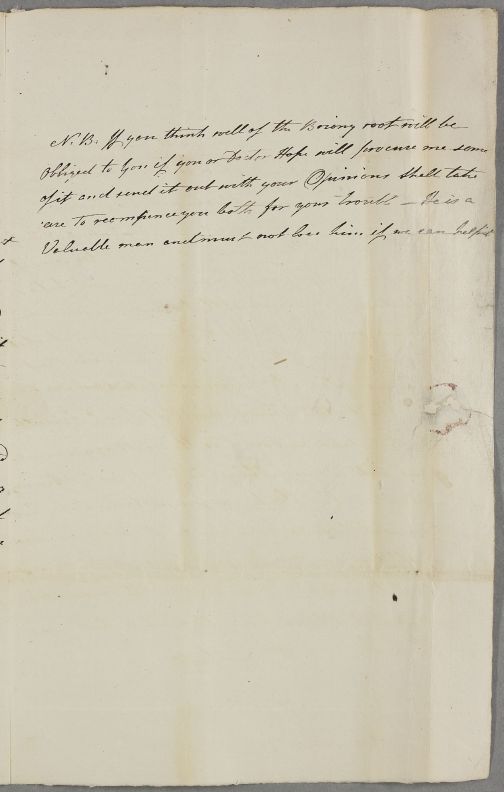 N.B. If you think well of the Briony root will be
Obliged to you if you or Doctor Hope will procure me some
of it and send it out with your Opinions Shall take
care to recompence you both for your trouble - He is a
Valuable man and must not lose him if we can help it